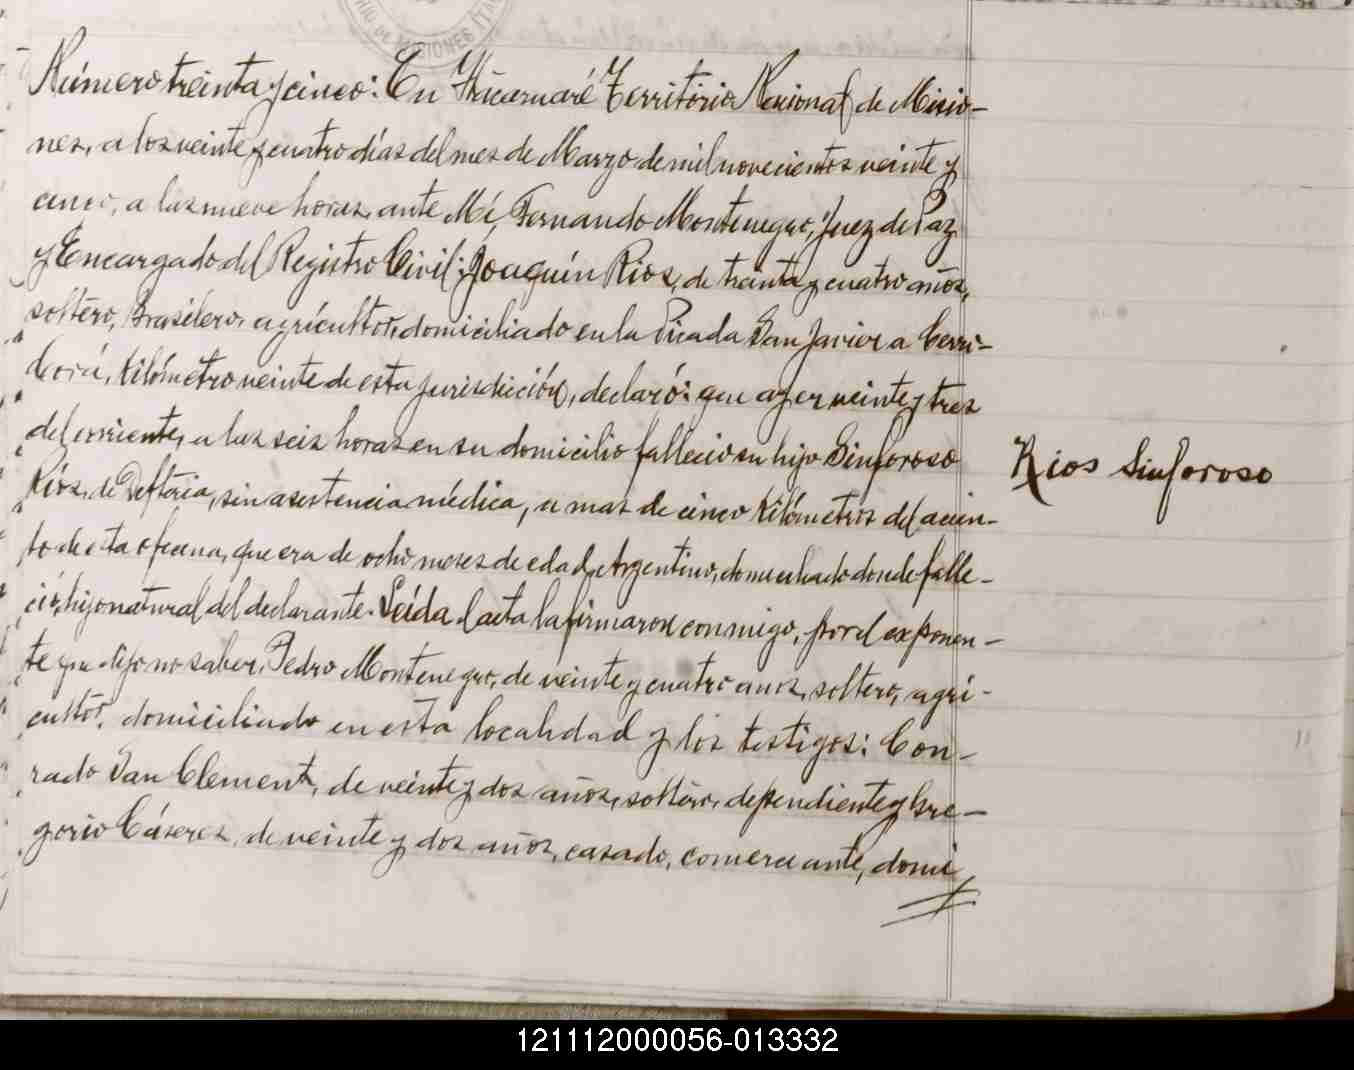 Número treinta y cinco: En Itácaruaré Territorio Nacional de Misio-
nes, a los veinte y cuatro días del mes de Marzo de mil novecientos veinte y
cinco, a las nueve horas, ante Mí, Fernando Montenegro, Juez de Paz
y Encargado del Registro Civil; Joaquín Rios, de treinta y cuatro años,
soltero, Brasilero, agrícultor, domiciliado en la Picada San Javier a Cerri-
Corá, Kilómetro veinte de esta jurisdicción, declaró: que ayer veinte y tres
del corriente, a las seis horas en su domicilio falleció su hijo Sinforoso
Ríos, de Defteria, sin asistencia médica, a mas de cinco Kilómetros del acien-
to de esta oficina, que era de ocho meses de edad, Argentino, domiciliado donde falle-
ció, hijo natural del declarante. Leída el acta la firmaron conmigo, por el exponen-
te que dijo no saber, Pedro Montenegro, de veinte y cuatro años, soltero, agri-
cultor, domiciliado en esta localidad y los testigos: Con-
rado San Clement, de veinte y dos años, soltero, dependiente y Gre-
gorio Cáseres, de veinte y dos años, casado, comerciante, domi
Rios Sinforoso
DE MISIONES
121112000056-013332